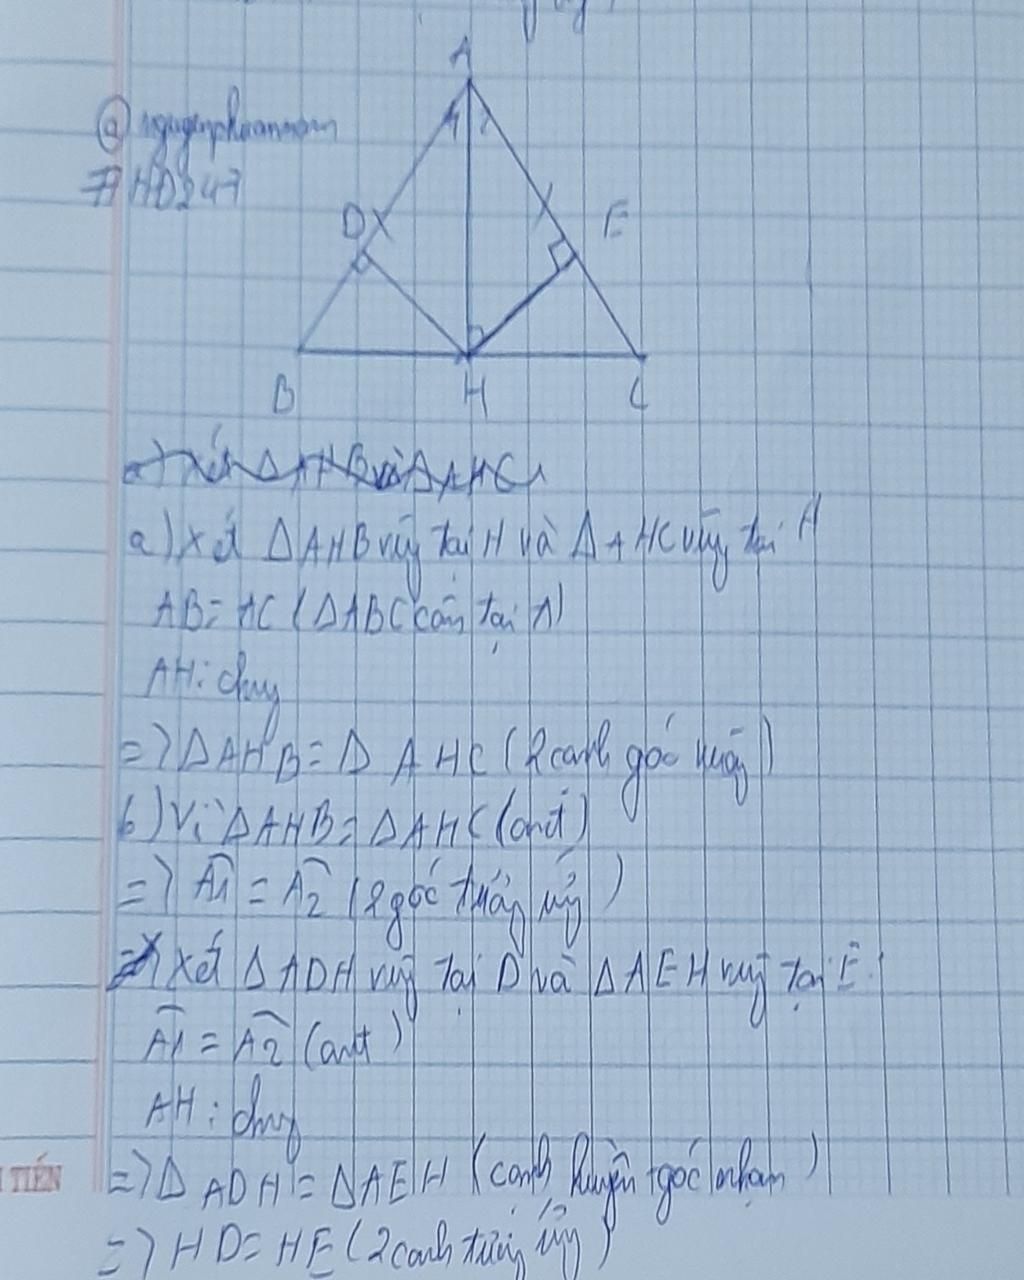 A
@nguyenphuannam
#HD247
D
E
B
H
C
a) Xét ΔAHB và ΔAHC
a) Xét ΔAHB vuông tại H và ΔAHC vuông tại H
AB = AC (ΔABC cân tại A)
AH: chung
=> ΔAHB = ΔAHC (2 cạnh góc vuông)
b) Vì ΔAHB = ΔAHC (cmt)
=> A1 = A2 (2 góc tương ứng)
Xét ΔADH vuông tại D và ΔAEH vuông tại E.
A1 = A2 (cmt)
AH: chung
TIẾN
=> ΔADH = ΔAEH (cạnh huyền - góc nhọn)
=> HD = HE (2 cạnh tương ứng)